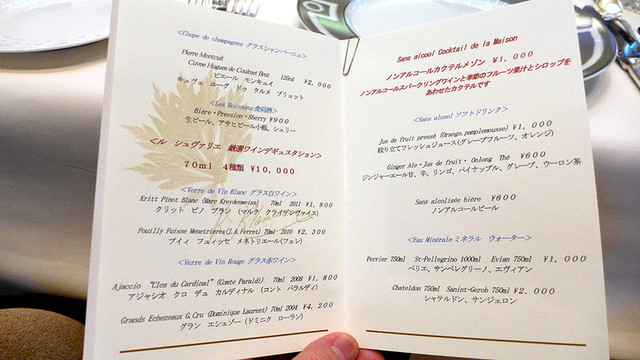 <Coupe de champagnes グラスシャンパーニュ>
Pierre Montcuit
Cuvee Hugues de Coulmet Brut 125ml ¥2,000
ピエール モンキュイ
キュヴェ ユーグ ドゥ クルメ ブリュット
<Les Boissons 食前酒>
Bière・Pression・Sherry ¥900
生ビール、アサヒビール小瓶、シェリー
<ル シュヴァリエ 厳選ワインデギュスタション>
70ml 4種類 ¥10,000
<Verre de Vin Blanc グラス白ワイン>
Kritt Pinot Blanc (Marc Kreydenweiss) 70ml 2011 ¥1,800
クリット ピノ ブラン (マルク クライデンヴァイス)
Pouilly Fuisse Menetrieres(J.A.Ferret) 70ml 2010 ¥2,300
プイィ フュイッセ メネトリエール(フェレ)
<Verre de Vin Rouge グラス赤ワイン>
Ajaccio "Clos du Cardinal" (Comte Peraldi) 70ml 2008 ¥1,800
アジャシオ クロ デュ カルディナル (コント パラルディ)
Grands Echezeaux G.Cru (Dominique Laurent) 70ml 2004 ¥4,200
グラン エシェゾー (ドミニク ローラン)
Sans alcool Cocktail de la Maison
ノンアルコールカクテルメゾン ¥1,000
ノンアルコールスパークリングワインと季節のフルーツ果汁とシロップを
あわせたカクテルです
<Sans alcool ソフトドリンク>
Jus de fruit pressé (Orange, pamplemousse) ¥1,000
絞り立てフレッシュジュース(グレープフルーツ、オレンジ)
Ginger Ale・Jus de fruit・ Oolong Thé ¥600
ジンジャーエール甘、辛、リンゴ、パイナップル、グレープ、ウーロン茶
Sans alcoolisée bière ¥600
ノンアルコールビール
<Eau Minérale ミネラル ウォーター>
Perrier 750ml St-Pellegrino 1000ml Evian 750ml ¥1,000
ペリエ、サンペレグリーノ、エヴィアン
Chateldon 750ml Sanint-Gerob 750ml ¥2,000
シャテルドン、サンジェロン